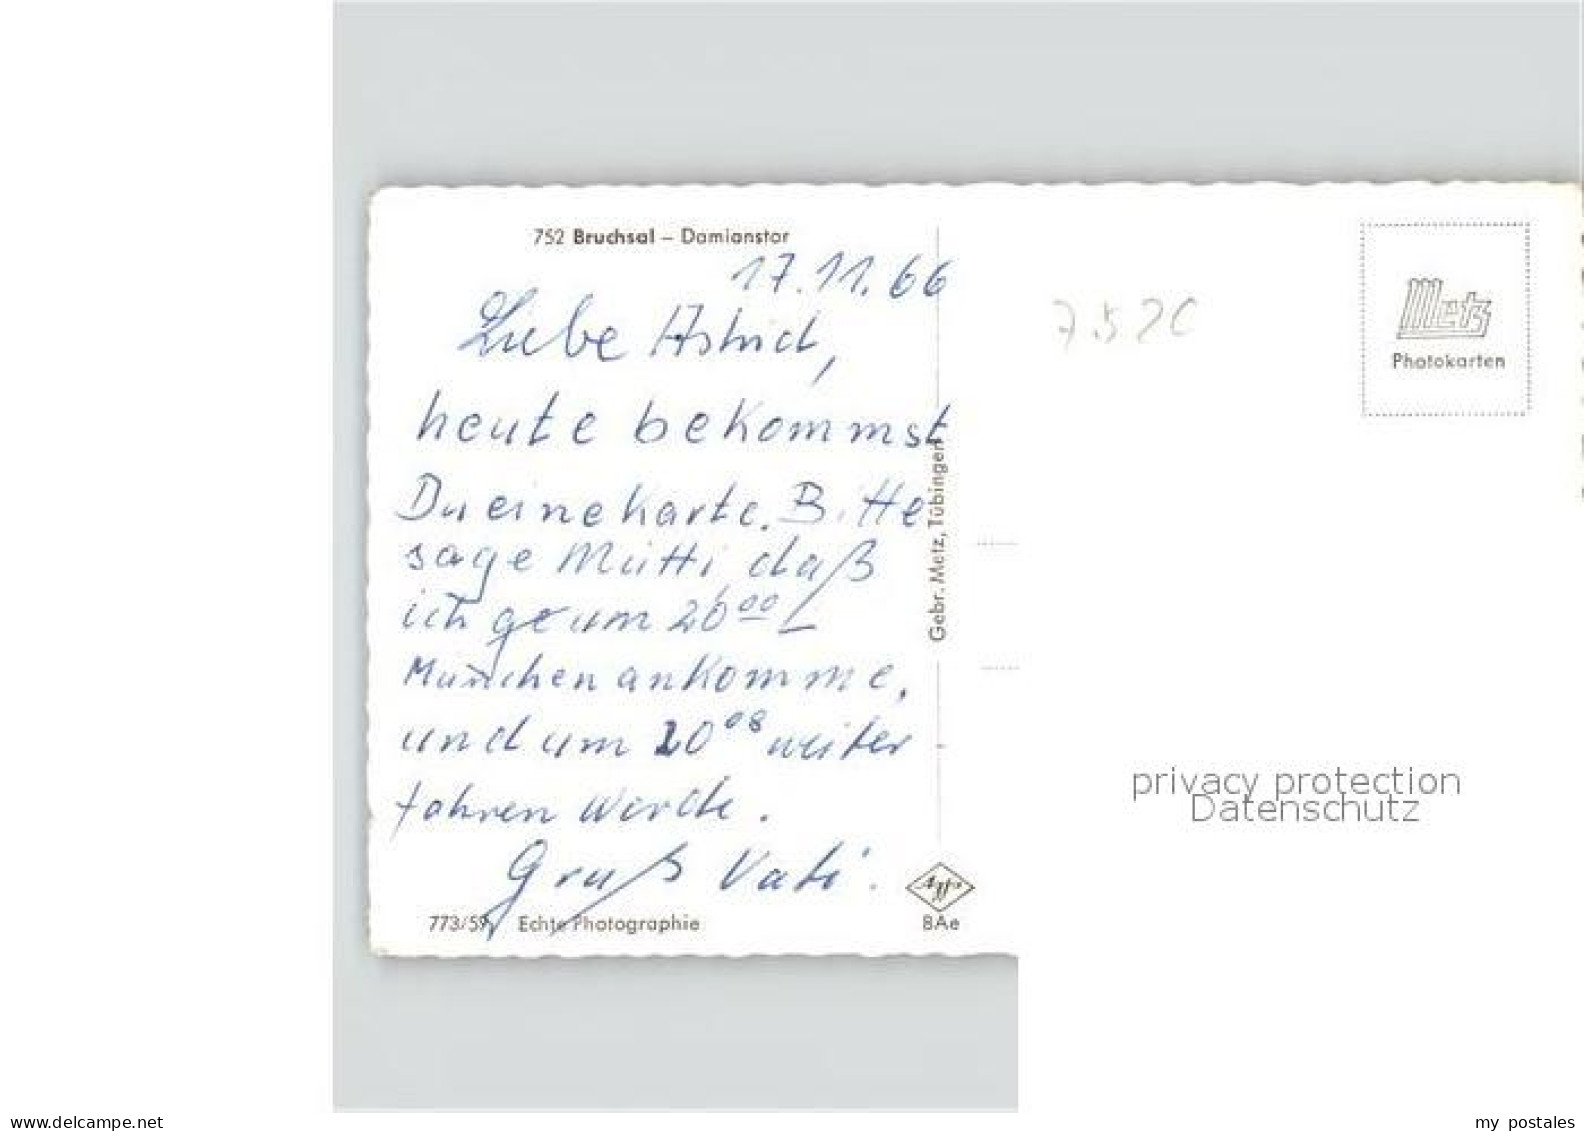 752 Bruchsal – Damianstor
17.11.66
Liebe Astrid,
heute bekommst
Du eine Karte. Bitte
sage Mutti, daß
ich um 20 00
München ankomme,
und um 20 08 weiter
fahren werde.
Gruß Vati.
773/59 Echte Photographie
Gebr. Metz, Tübingen
Agfa
BAe
7.520
Metz
Photokarten
privacy protection
Datenschutz
www.delcampe.net
my postales